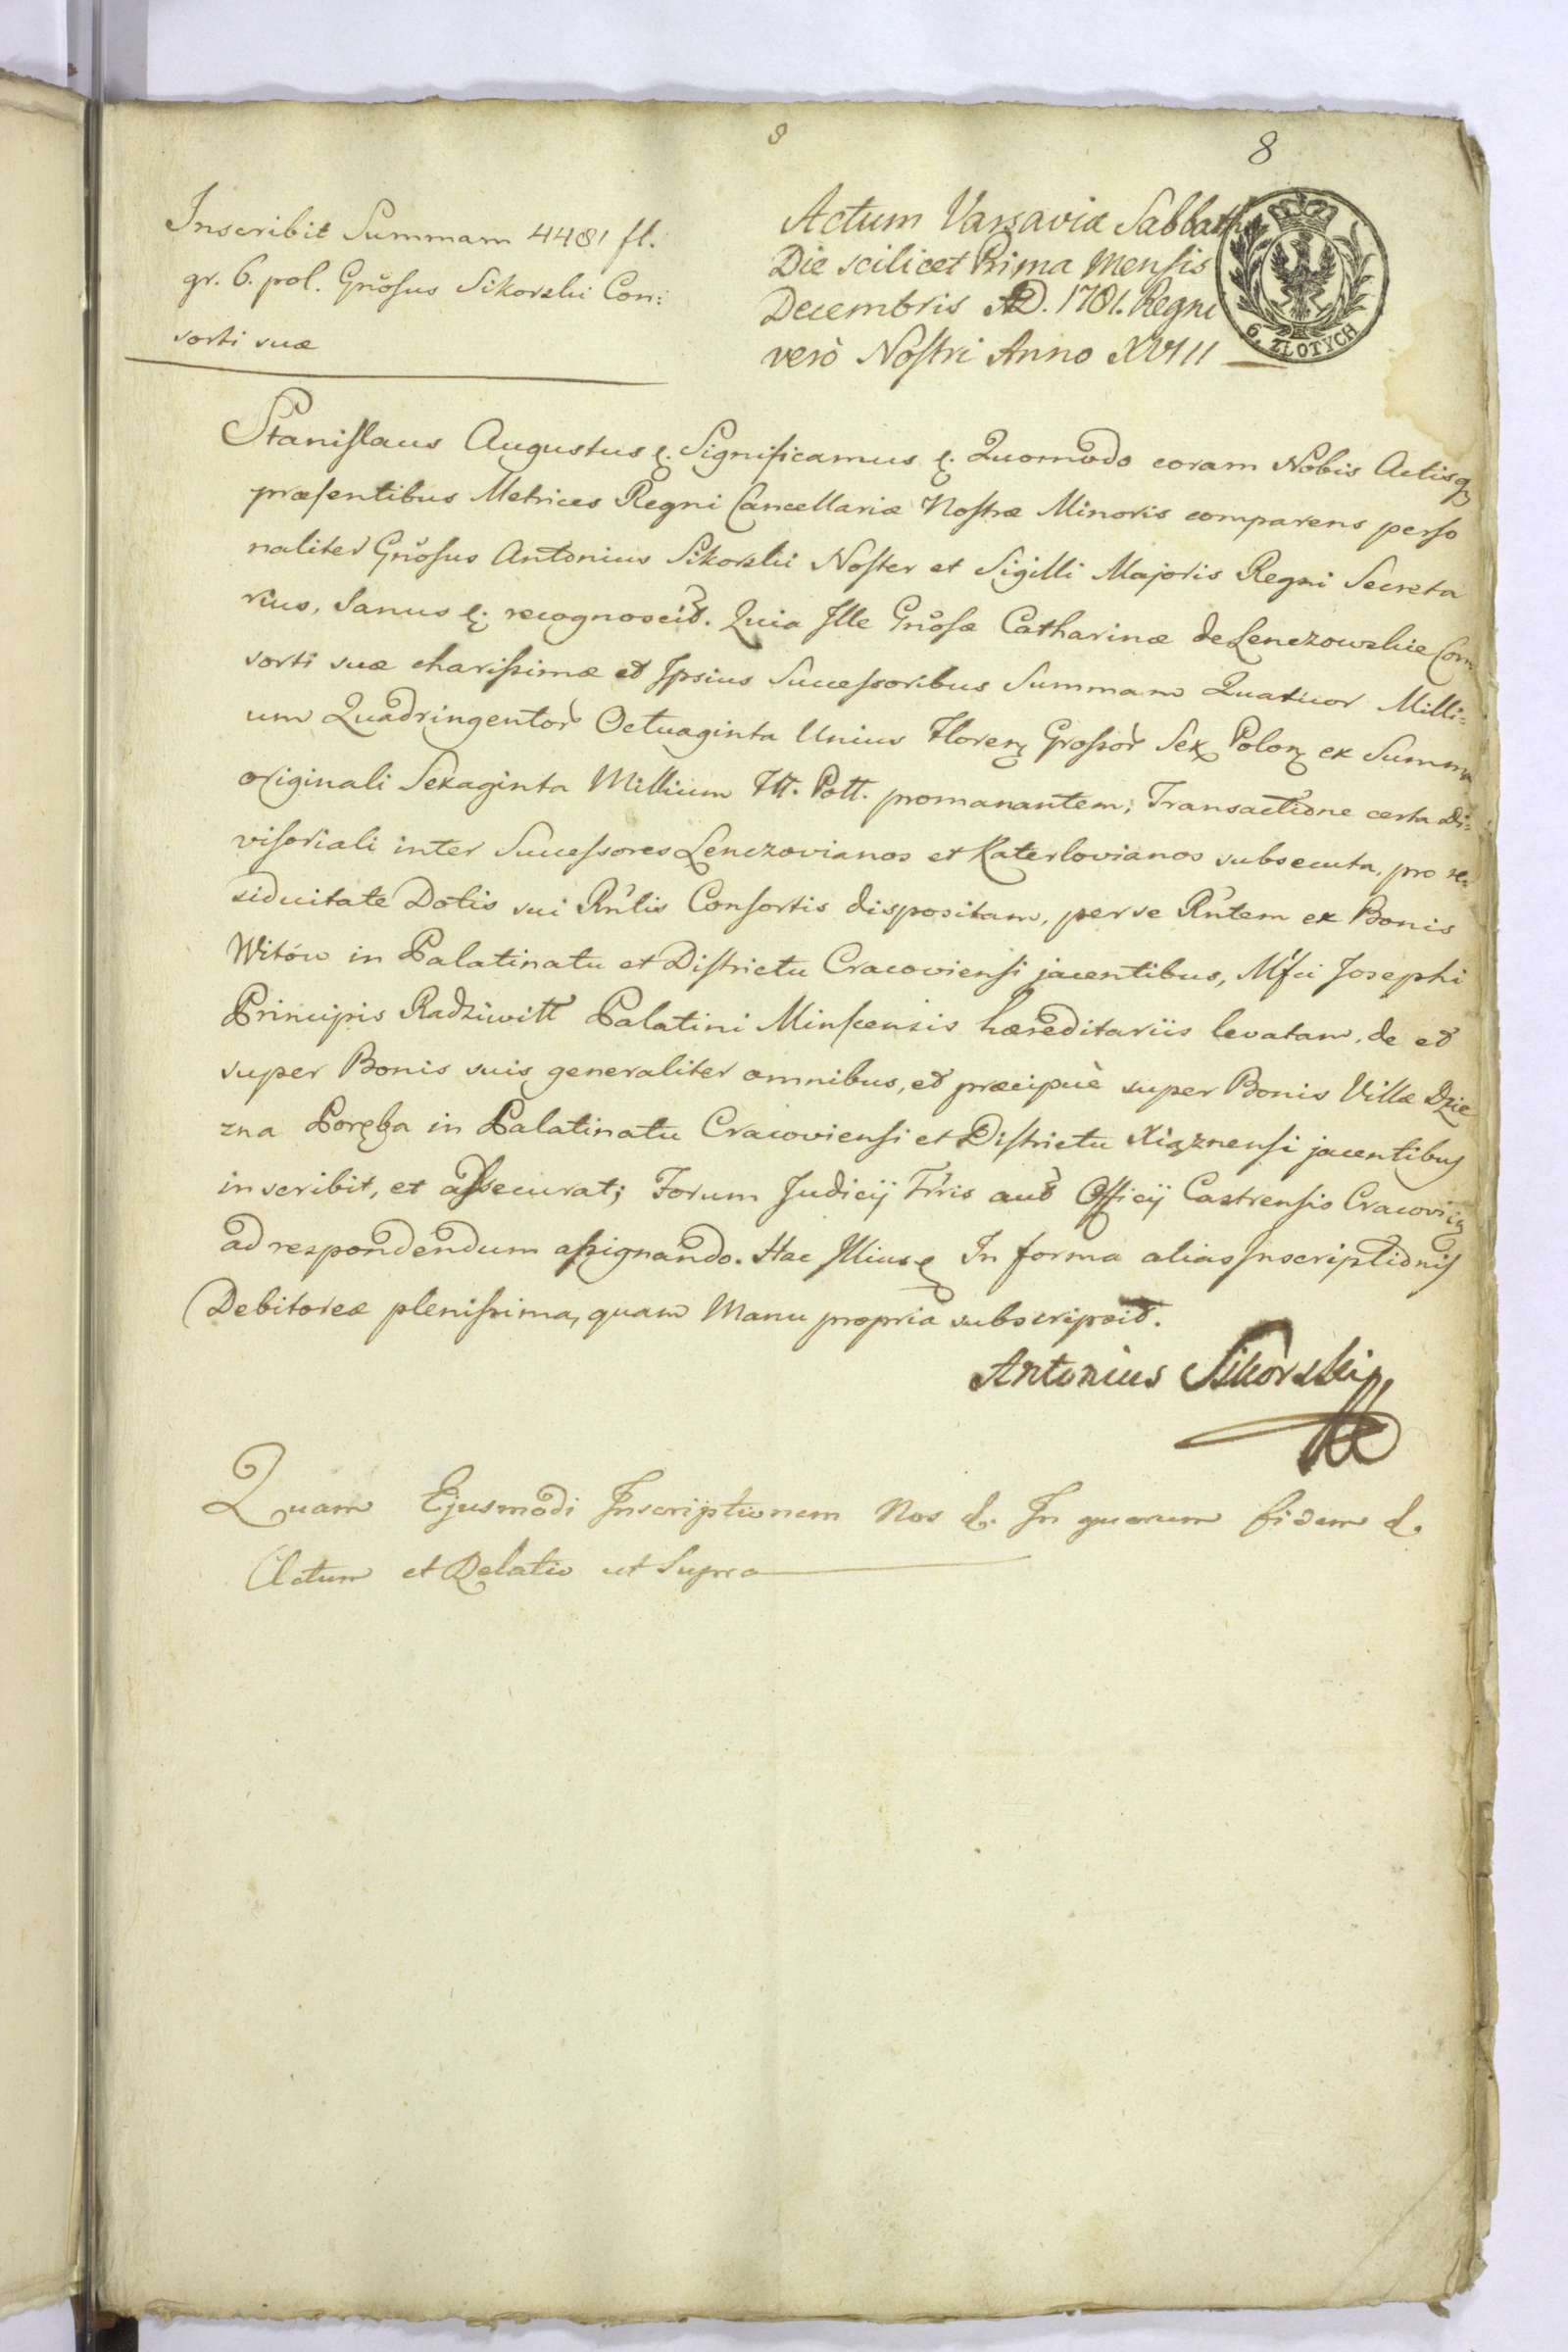 8
8
Inscribit Summam 4481 fl.
gr. 6. pol. Gnosus Sikorski Con:
sorti suæ
Actum Varsaviæ Sabbatho
Die scilicet Prima Mensis
Decembris AD. 1781. Regni
verò Nostri Anno XVIII
6. ZŁOTYCH
Stanislaus Augustus &. Significamus &. Quomodo coram Nobis Actisq
præsentibus Metrices Regni Cancellariæ Nostræ Minoris comparens perso
naliter Gnosus Antonius Sikorski Noster et Sigilli Majoris Regni Secreta
rius, Sanus &. recognoscit. Quia Ille Gnosæ Catharinæ de Lenczowskie Con
sorti suæ charissimæ et Ipsius Successoribus Summam Quatuor Milli=
um Quadringentor Octuaginta Unius Floren Grossor Sex Polon ex Summa
originali Sexaginta Millium Fll. Poll. promanantem, Transactione certa di=
visoriali inter Successores Lenczovianos et Katerlovianos subsecuta, pro re=
siduitate Dotis sui Rnlis Consortis dispositam, per se Rntem ex Bonis
Witów in Palatinatu et Districtu Cracoviensi jacentibus, Mfci Josephi
Principis Radziwill Palatini Minscensis hæreditariis levatam, de et
super Bonis suis generaliter omnibus, et præcipuè super Bonis Villæ Dzie
zna Poręba in Palatinatu Cracoviensi et Districtu Xiąznensi jacentibus
inscribit, et assecurat; Forum Judicij Trris aut Officij Castrensis Cracovien
ad respondendum assignando. Hac Illius & In forma alias Inscriptionis
Debitoreæ plenissima, quam Manu propria subscripsit.
Antonius Sikorski
Quam Ejusmodi Inscriptionem Nos &. In quorum fidem &.
Actum et Relatio ut Supra